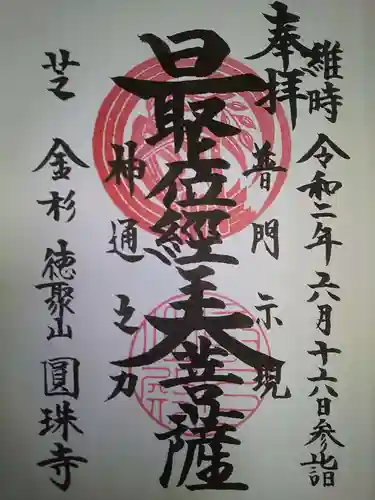 維時令和二年六月十六日参詣
奉拝
普門示現
最上位經王大菩薩
神通之力
芝金杉徳聚山圓珠寺